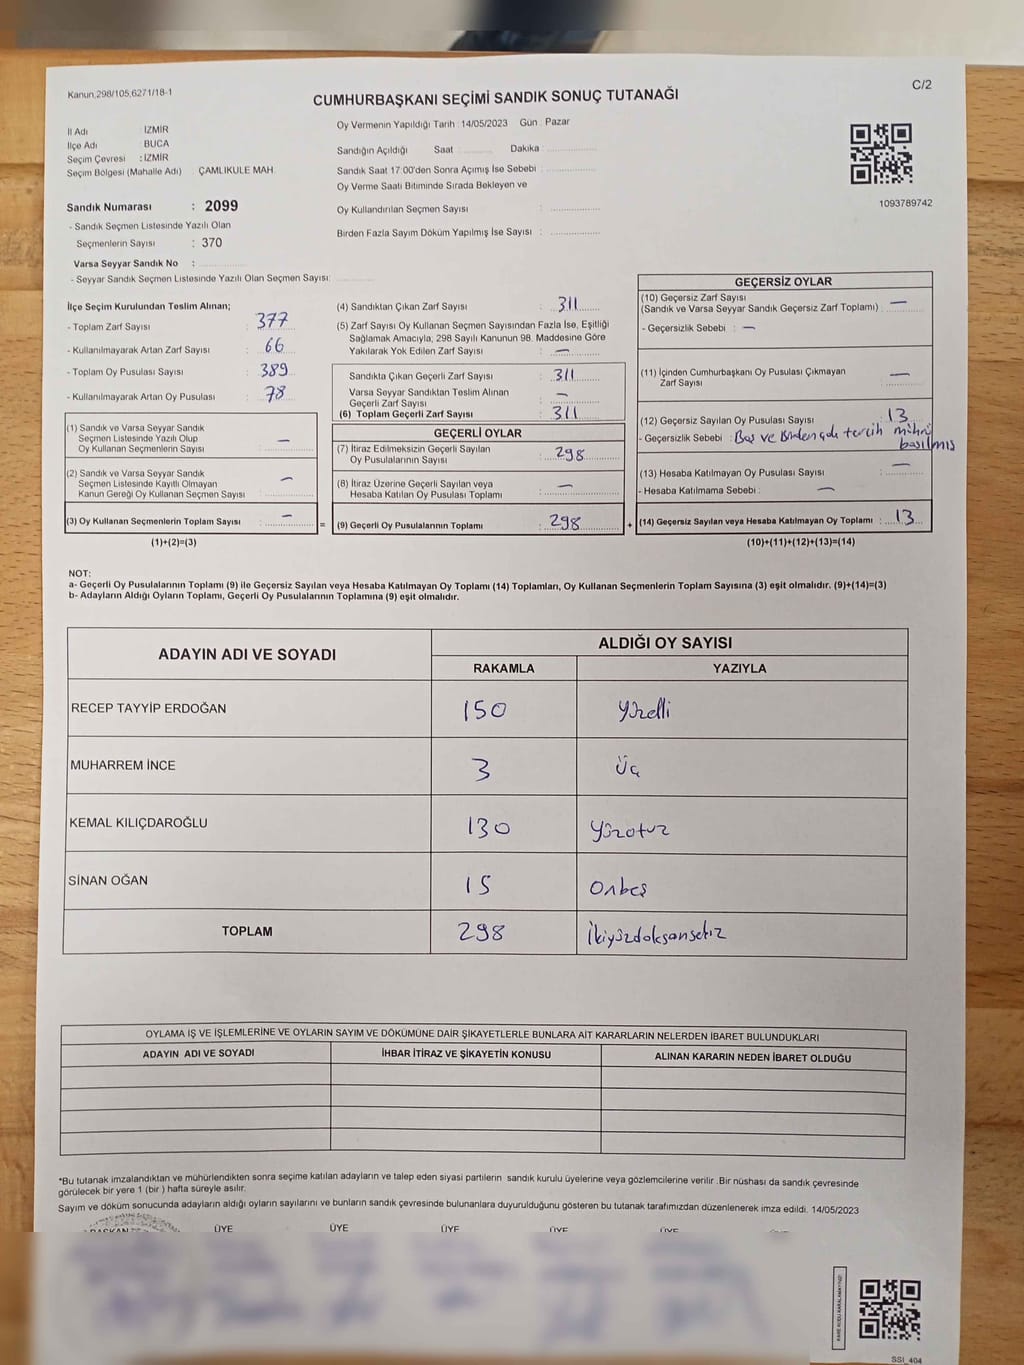 Kanun,298/105,6271/18-1
C/2
CUMHURBAŞKANI SEÇİMİ SANDIK SONUÇ TUTANAĞI
İl Adı İZMİR
İlçe Adı BUCA
Seçim Çevresi : İZMİR
Seçim Bölgesi (Mahalle Adı) ÇAMLIKULE MAH.
Sandık Numarası : 2099
- Sandık Seçmen Listesinde Yazılı Olan
Seçmenlerin Sayısı : 370
Varsa Seyyar Sandık No :
- Seyyar Sandık Seçmen Listesinde Yazılı Olan Seçmen Sayısı:
Oy Vermenin Yapıldığı Tarih : 14/05/2023 Gün : Pazar
Sandığın Açıldığı Saat Dakika
Sandık Saat 17:00'den Sonra Açımış İse Sebebi
Oy Verme Saati Bitiminde Sırada Bekleyen ve
Oy Kullandırılan Seçmen Sayısı :
Birden Fazla Sayım Döküm Yapılmış İse Sayısı :
1093789742
İlçe Seçim Kurulundan Teslim Alınan;
- Toplam Zarf Sayısı : 377
- Kullanılmayarak Artan Zarf Sayısı : 66
- Toplam Oy Pusulası Sayısı : 389
- Kullanılmayarak Artan Oy Pusulası : 78
(1) Sandık ve Varsa Seyyar Sandık
Seçmen Listesinde Yazılı Olup
Oy Kullanan Seçmenlerin Sayısı : —
(2) Sandık ve Varsa Seyyar Sandık
Seçmen Listesinde Kayıtlı Olmayan
Kanun Gereği Oy Kullanan Seçmen Sayısı : —
(3) Oy Kullanan Seçmenlerin Toplam Sayısı : —
(1)+(2)=(3)
(4) Sandıktan Çıkan Zarf Sayısı : 311
(5) Zarf Sayısı Oy Kullanan Seçmen Sayısından Fazla İse, Eşitliği
Sağlamak Amacıyla, 298 Sayılı Kanunun 98. Maddesine Göre
Yakılarak Yok Edilen Zarf Sayısı : —
Sandıkta Çıkan Geçerli Zarf Sayısı : 311
Varsa Seyyar Sandıktan Teslim Alınan
Geçerli Zarf Sayısı : —
(6) Toplam Geçerli Zarf Sayısı : 311
GEÇERLİ OYLAR
(7) İtiraz Edilmeksizin Geçerli Sayılan
Oy Pusulalarının Sayısı : 298
(8) İtiraz Üzerine Geçerli Sayılan veya
Hesaba Katılan Oy Pusulası Toplamı : —
= (9) Geçerli Oy Pusulalarının Toplamı : 298 +
GEÇERSİZ OYLAR
(10) Geçersiz Zarf Sayısı
(Sandık ve Varsa Seyyar Sandık Geçersiz Zarf Toplamı) : —
- Geçersizlik Sebebi : —
(11) İçinden Cumhurbaşkanı Oy Pusulası Çıkmayan
Zarf Sayısı : —
(12) Geçersiz Sayılan Oy Pusulası Sayısı : 13
- Geçersizlik Sebebi : Boş ve Birden çok tercih mührü
basılmış
(13) Hesaba Katılmayan Oy Pusulası Sayısı : —
- Hesaba Katılmama Sebebi : —
(14) Geçersiz Sayılan veya Hesaba Katılmayan Oy Toplamı : 13
(10)+(11)+(12)+(13)=(14)
NOT:
a- Geçerli Oy Pusulalarının Toplamı (9) ile Geçersiz Sayılan veya Hesaba Katılmayan Oy Toplamı (14) Toplamları, Oy Kullanan Seçmenlerin Toplam Sayısına (3) eşit olmalıdır. (9)+(14)=(3)
b- Adayların Aldığı Oyların Toplamı, Geçerli Oy Pusulalarının Toplamına (9) eşit olmalıdır.
ADAYIN ADI VE SOYADI
ALDIĞI OY SAYISI
RAKAMLA YAZIYLA
RECEP TAYYİP ERDOĞAN 150 Yüzelli
MUHARREM İNCE 3 Üç
KEMAL KILIÇDAROĞLU 130 Yüzotuz
SİNAN OĞAN 15 Onbeş
TOPLAM 298 İkiyüzdoksansekiz
OYLAMA İŞ VE İŞLEMLERİNE VE OYLARIN SAYIM VE DÖKÜMÜNE DAİR ŞİKAYETLERLE BUNLARA AİT KARARLARIN NELERDEN İBARET BULUNDUKLARI
ADAYIN ADI VE SOYADI İHBAR İTİRAZ VE ŞİKAYETİN KONUSU ALINAN KARARIN NEDEN İBARET OLDUĞU
*Bu tutanak imzalandıktan ve mühürlendikten sonra seçime katılan adayların ve talep eden siyasi partilerin sandık kurulu üyelerine veya gözlemcilerine verilir .Bir nüshası da sandık çevresinde
görülecek bir yere 1 (bir ) hafta süreyle asılır.
Sayım ve döküm sonucunda adayların aldığı oyların sayılarını ve bunların sandık çevresinde bulunanlara duyurulduğunu gösteren bu tutanak tarafımızdan düzenlenerek imza edildi. 14/05/2023
BAŞKAN ÜYE ÜYE ÜYE ÜYE ÜYE
SSI_404